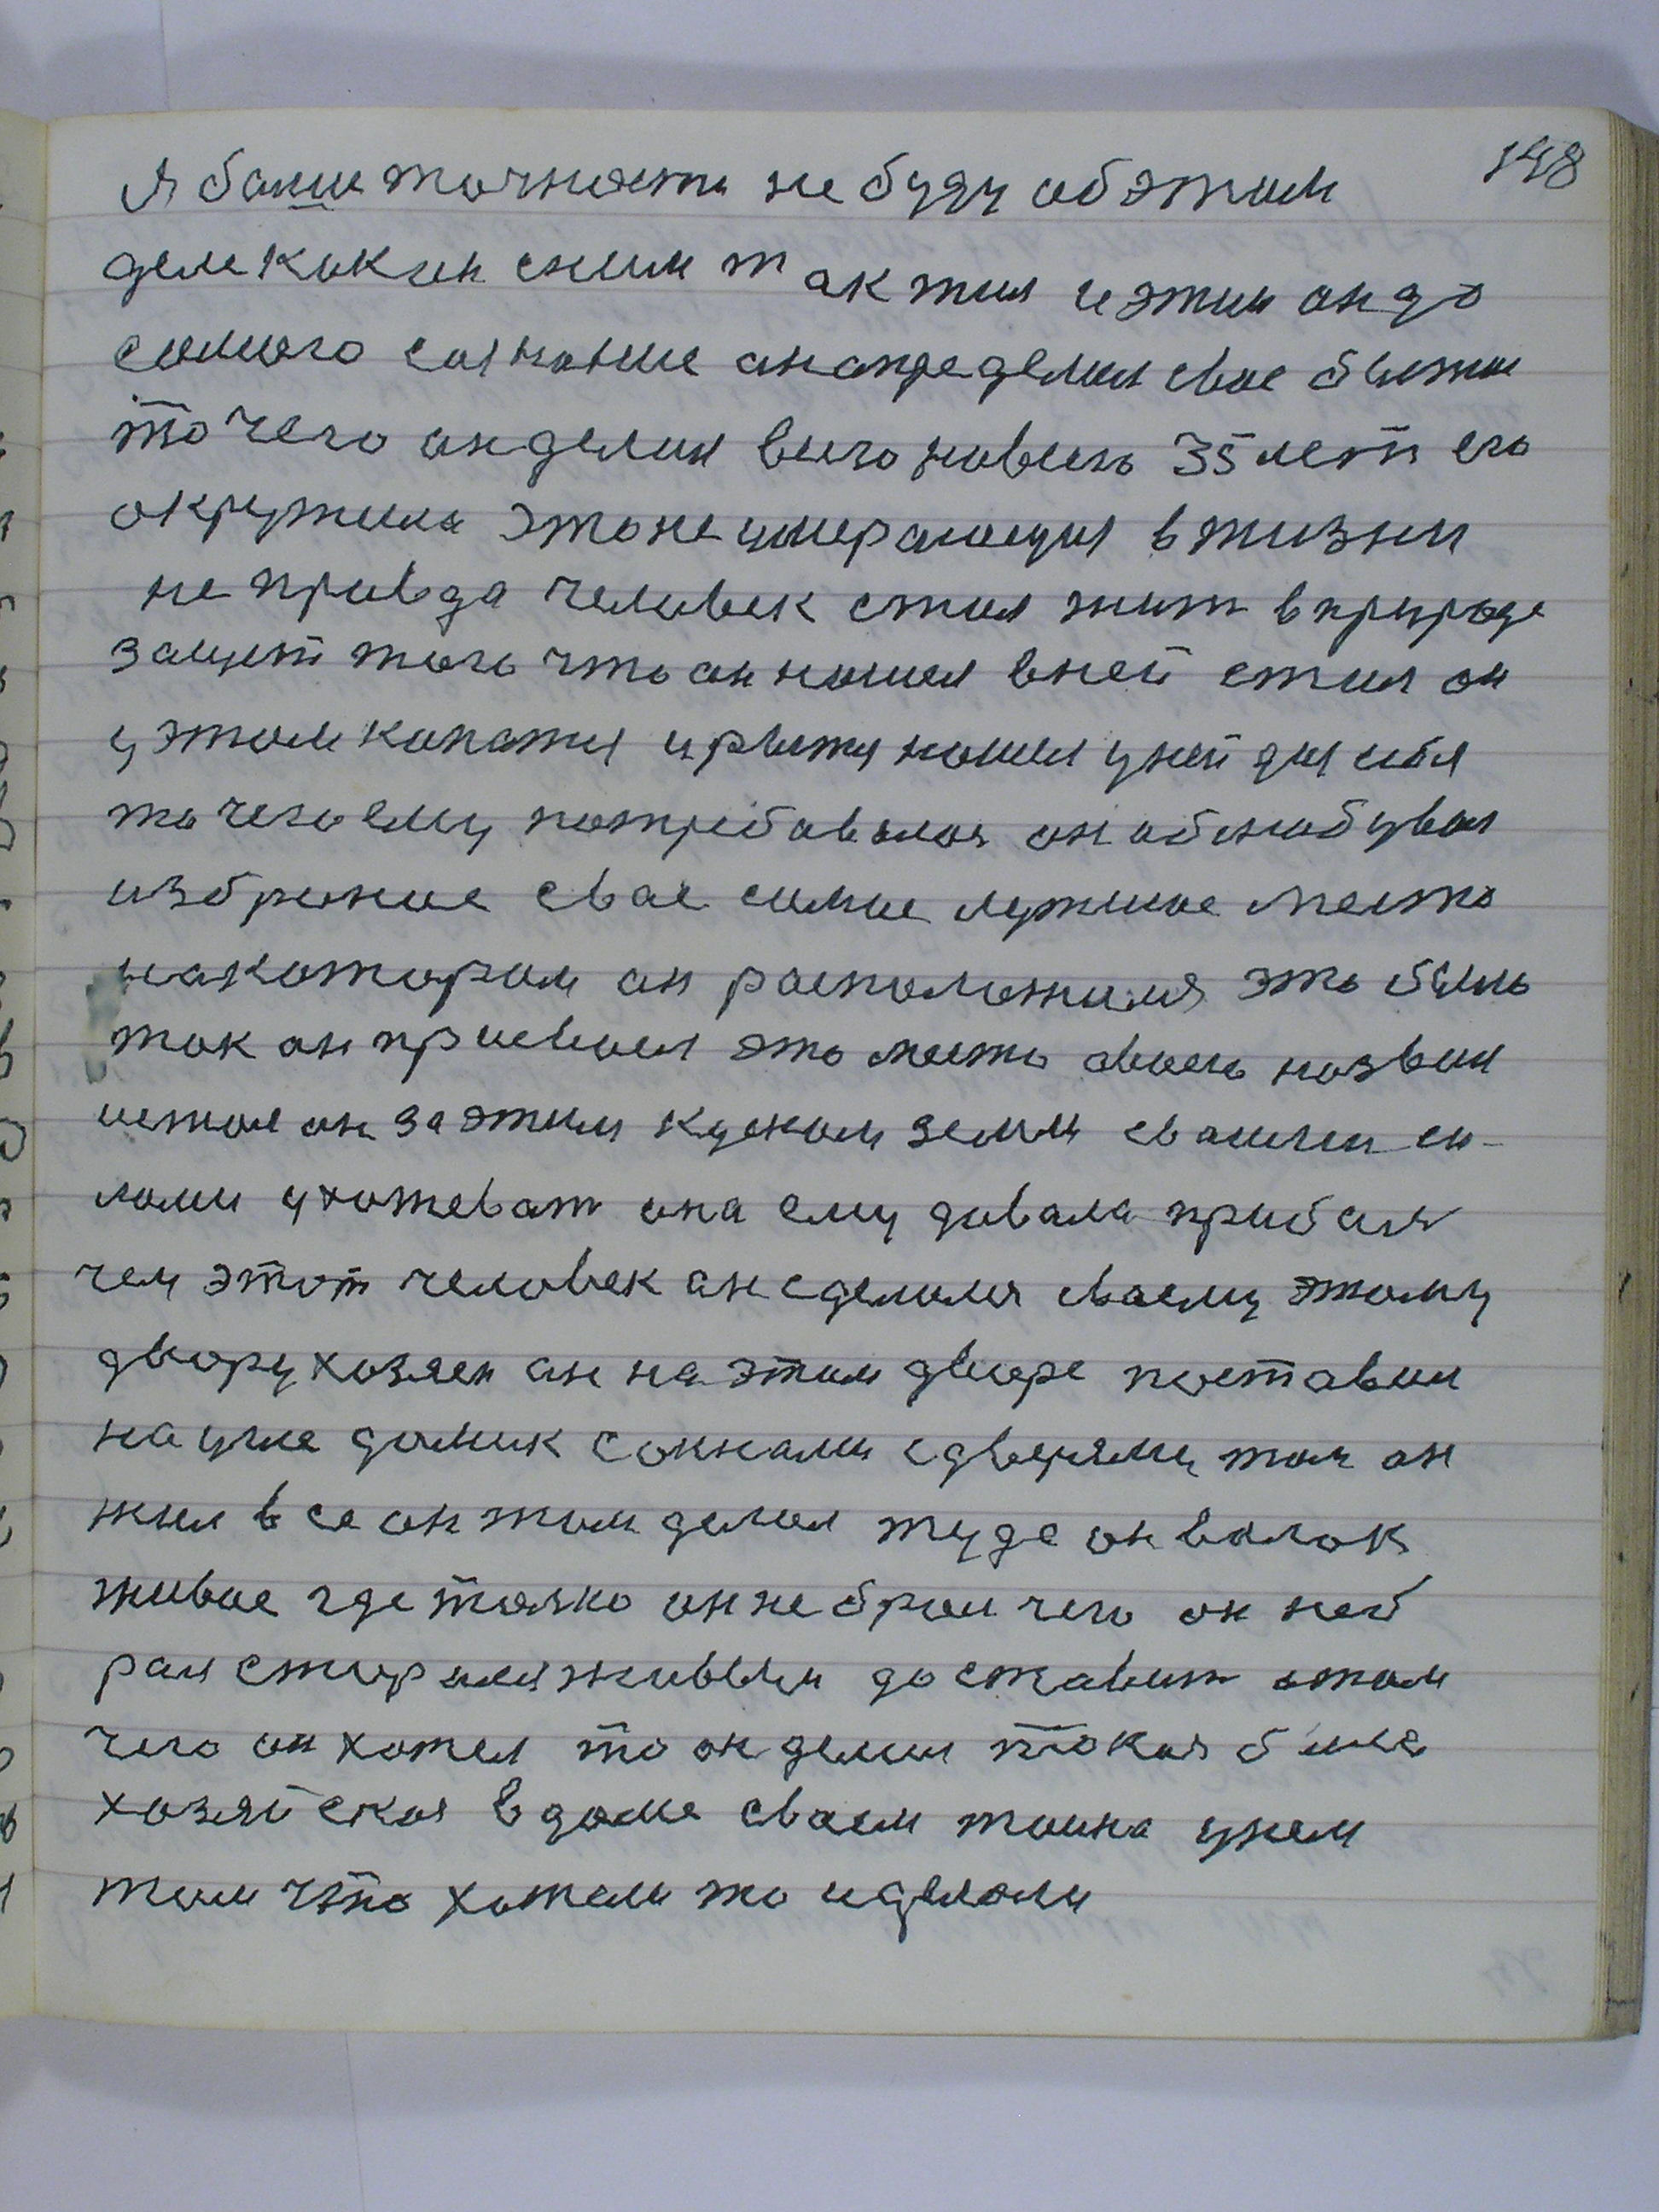 148
Я баши точности не буду об этом
деле как он сним так жил и этим он до
самого сознание анапределил свае бытие
то чего он делал вего навего 35 лет его
окружила это не умерающия в жизни
не правда человек стал жит в природе
защет того что он нашел вней стал он
у этом копатся и рытся нашел уней для себя
то чего ему потребавалос он обнабувал
избраное свае самае лутшое место
накотором он расположился это было
так он присвоел это место своего назвал
истал он за этим куском земли сваими си-
лами ухотеват она ему давала прибал
чем этот человек он сделался сваему этому
двору хозяен он на этом дворе поставил
на уме домик сокнами сдверями там он
жил все он там делал туда он валок
живое где толко он не брал чего он неб
рал старался живым доставит отом
чего он хотел то он делал такая была
хозяйская в доме сваем тоина унем
там что хотели то идвлали